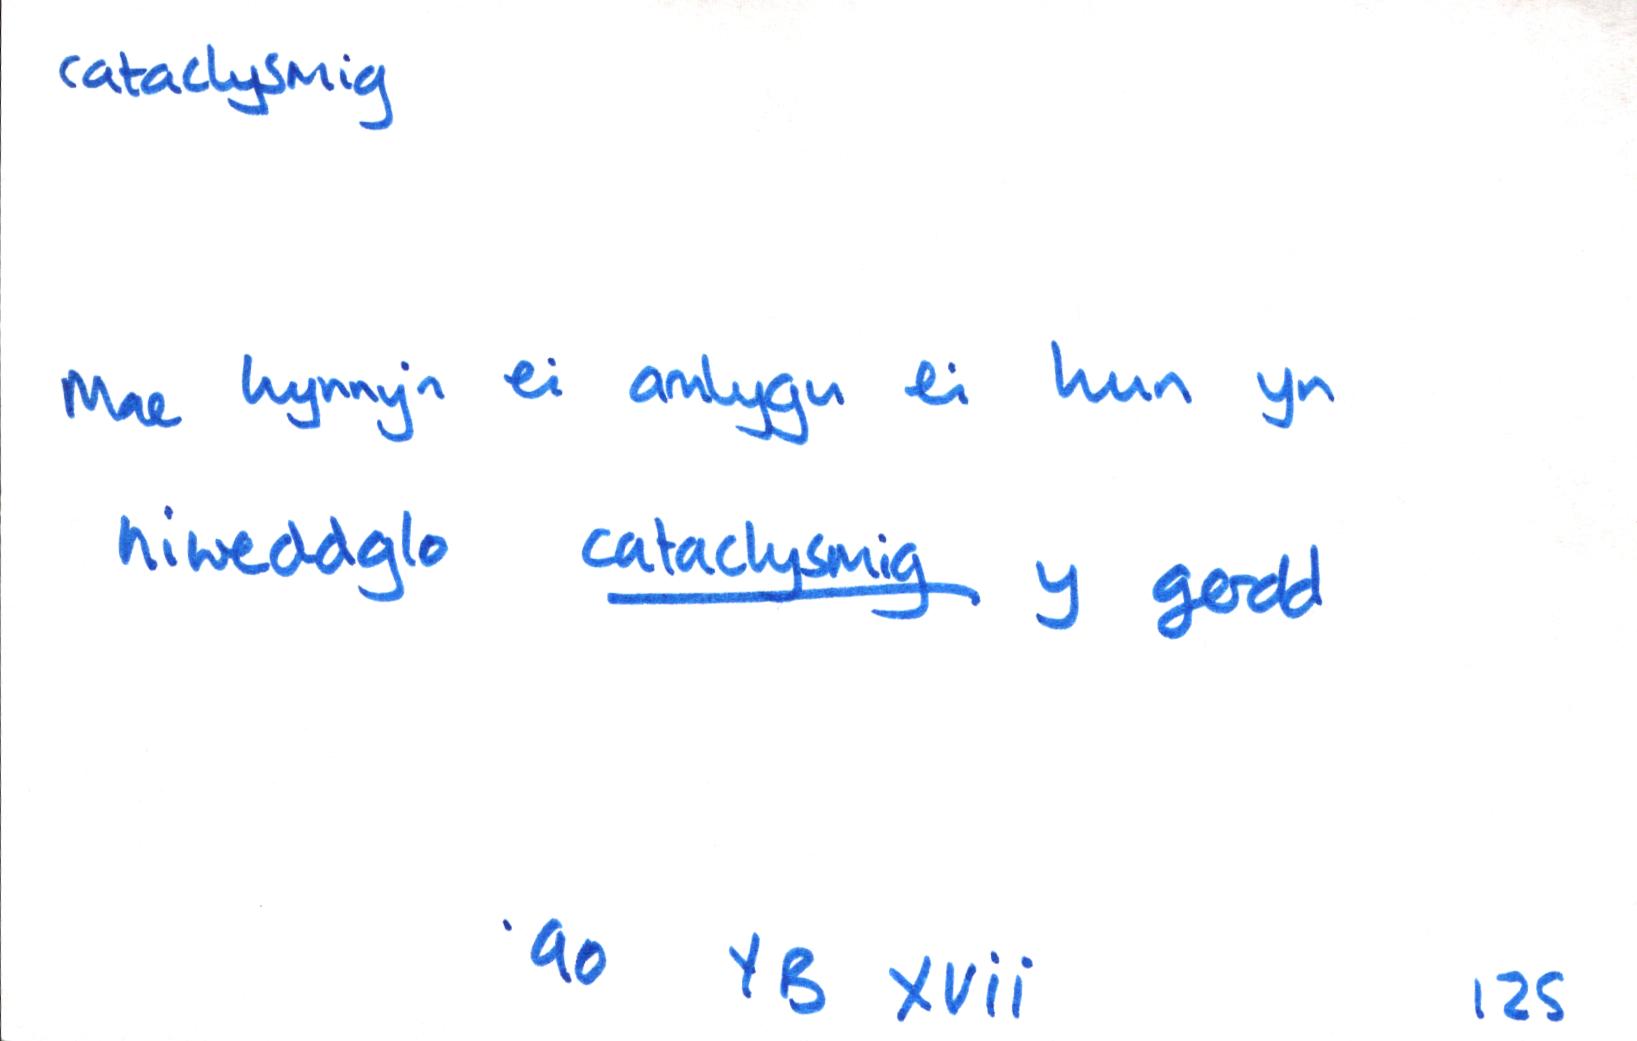 cataclysmig
Mae hynny'n ei amlygu ei hun yn
niweddglo cataclysmig y gerdd
'90 YB XVii 125